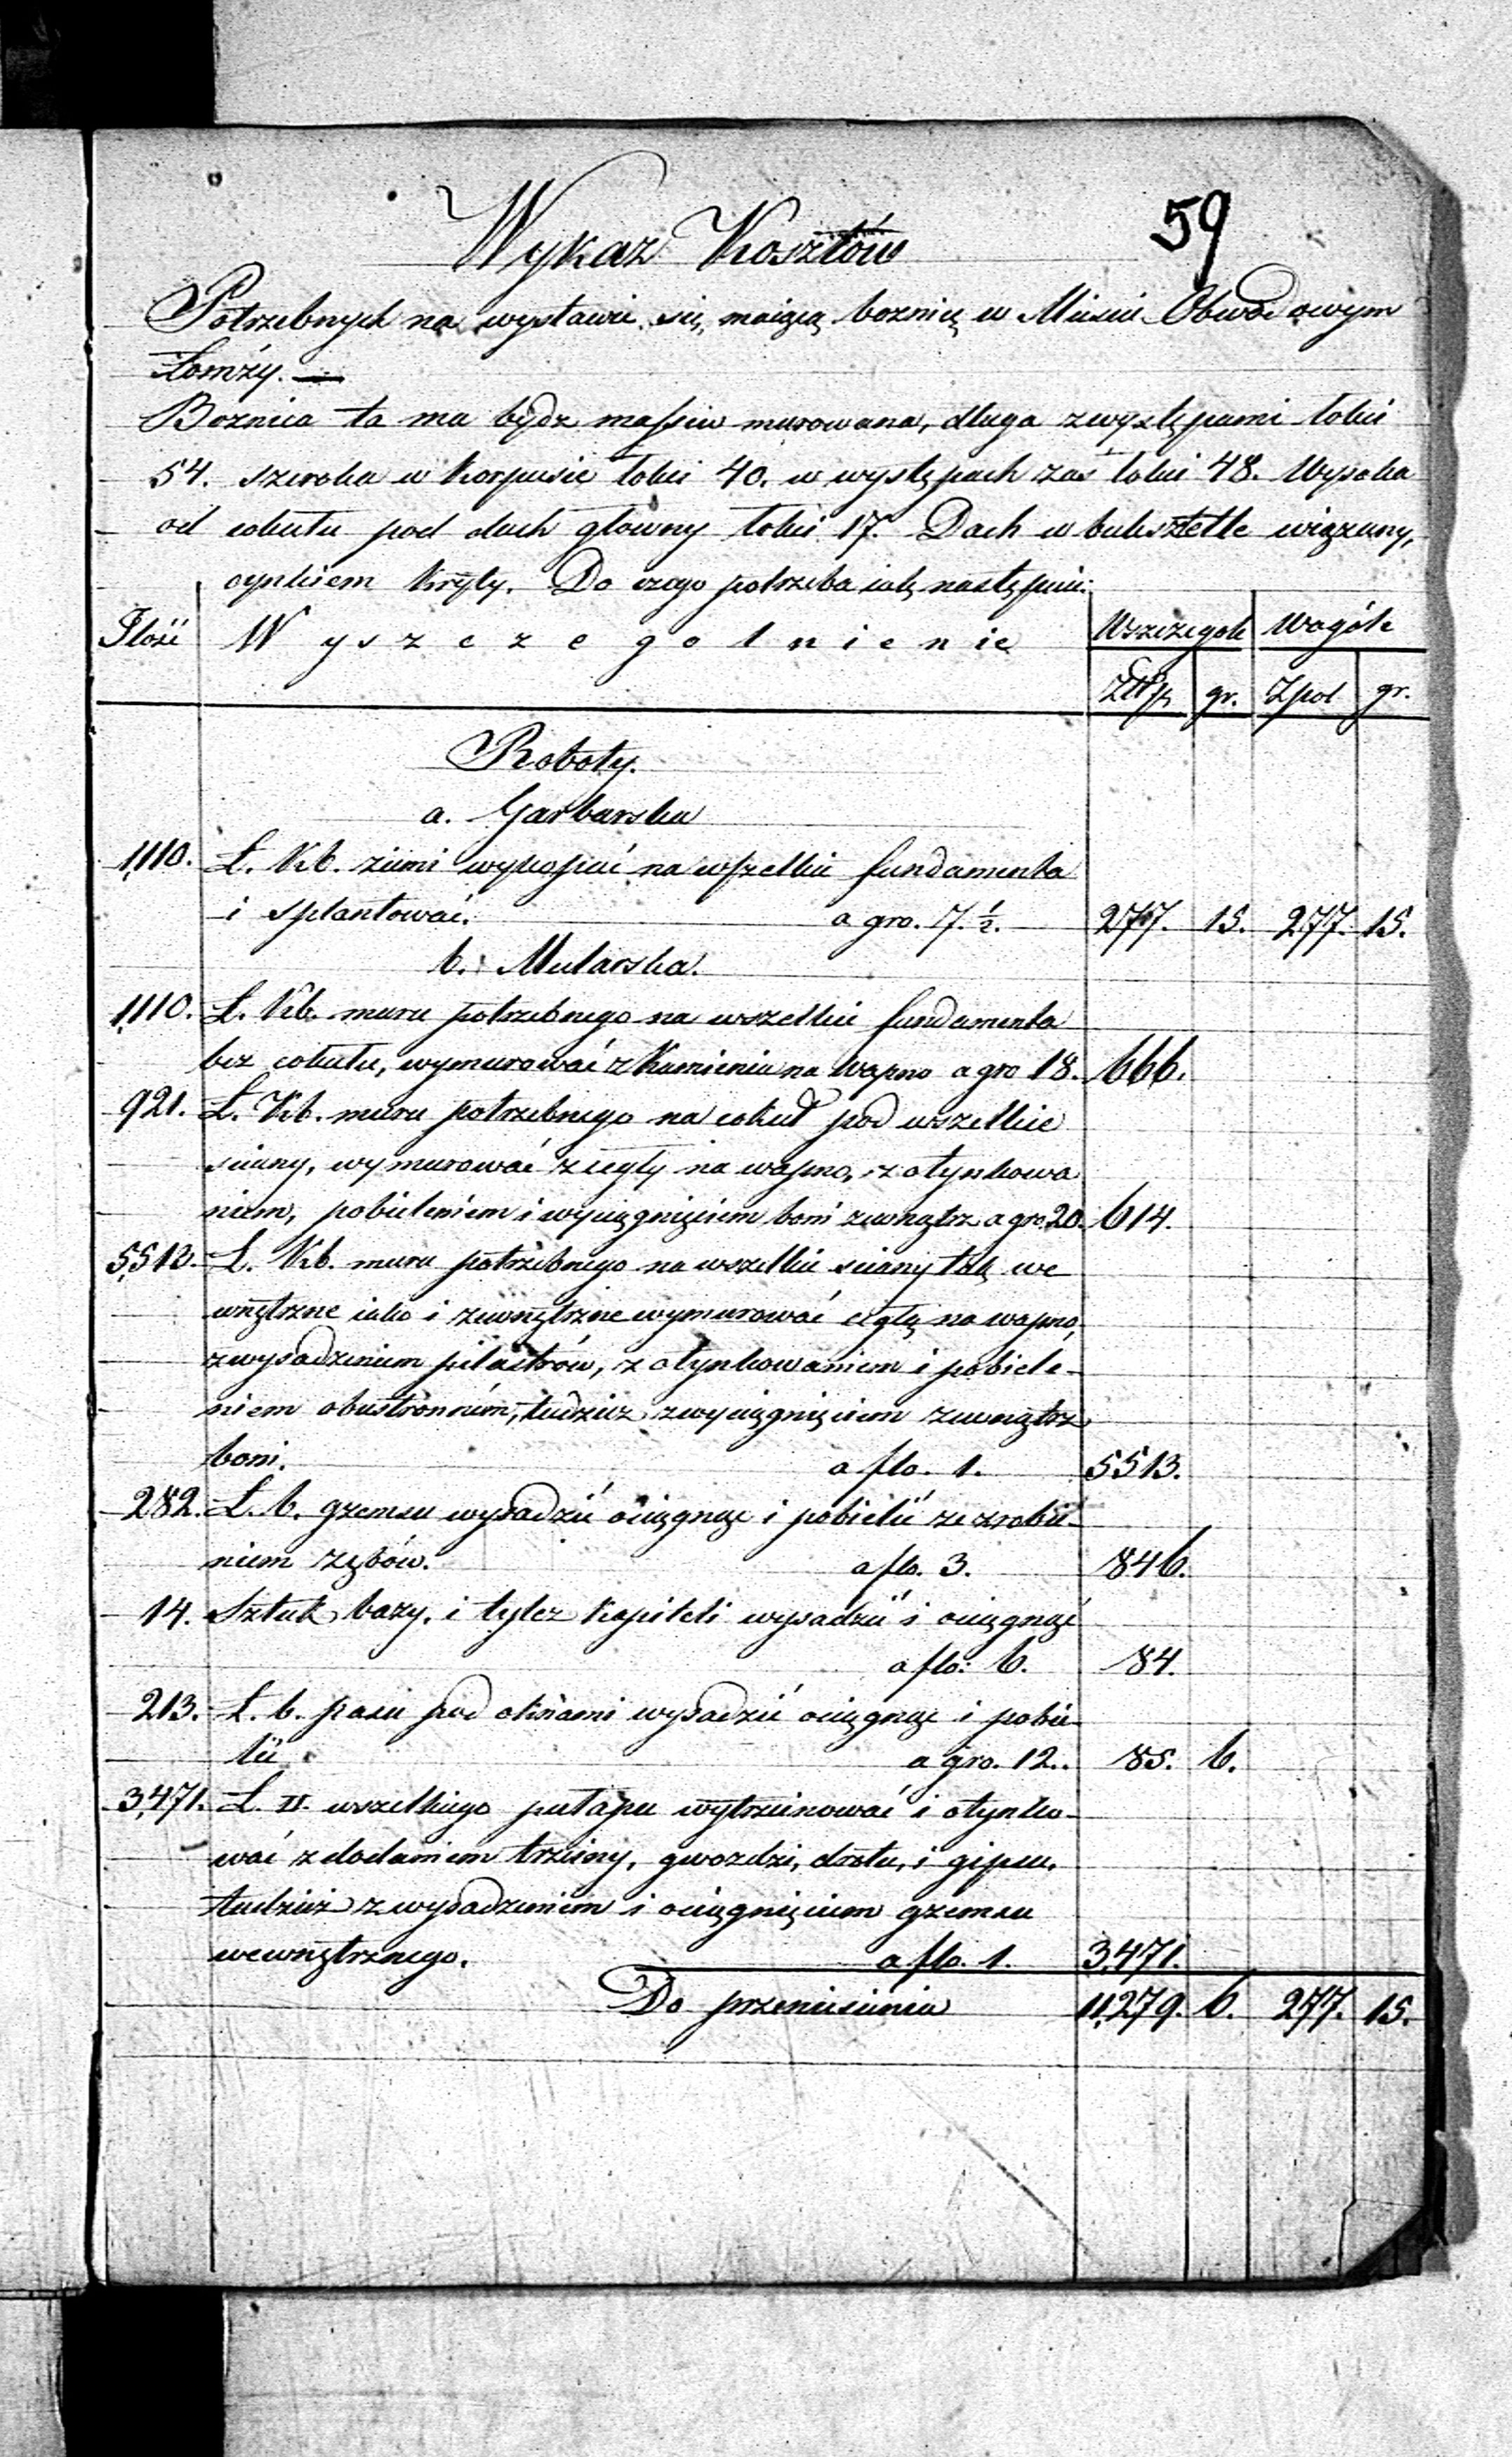 59
Wykaz Kosztów
Potrzebnych na wystawić się maiącą boznicę w Mieście Obwodowym
Łomży. —
Boznica ta ma bydź massiw murowana, długa z występami łokci
54. szeroka w korpusie łokci 40. w występach zaś łokci 48. Wysoka
od cokułu pod dach główny łokci 17. Dach w buksztelle wiązany,
cynkiem kryty. Do czego potrzeba iak następuie:
Ilość Wyszczegolnienie Wszczegole Wogóle
Złlp. gr. Zpol gr.
Roboty.
a. Garbarska
1,110. Ł. Kb. ziemi wykopać na wszelkie fundamenta
i splantować. a gro. 7. ½. 277. 15. 277. 15.
b. Mularska.
1,110. Ł. Kb. muru potrzebnego na wszelkie fundamenta
bez cokułu, wymurować z Kamienia na wapno a gro 18. 666.
921. Ł. Kb. muru potrzebnego na cokuł pod wszelkie
sciany, wymurować z cegły na wapno, z otynkowa
niem, pobieleniem i wyciągnięciem boni zewnątrz a gro. 20. 614.
5,513. Ł. Kb. muru potrzebnego na wszelkie sciany tak we
wnętrzne iako i zewnętrzne wymurować cegłą na wapno,
z wysadzeniem pilastrów, z otynkowaniem i pobiele-
niem obustronném, tudzież z wyciągnięciem zewnątrz
boni. a flo. 1. 5513.
282. Ł. b. gzemsu wysadzić ociągnąć i pobielić ze zrobie-
niem zębów. a flo. 3. 846.
14. Sztuk bazy, i tyleż kapiteli wysadzić i ociągnąć
a flo: 6. 84.
213. Ł. b. pasu pod oknami wysadzić ociągnąć i pobie-
lić a gro. 12.. 85. 6.
3,471. Ł. □. wszelkiego pułapu wytrzcinować i otynko-
wać z dodaniem trzciny, gwozdzi, drotu, i gipsu,
tudzież z wysadzeniem i ociągnięciem gzemsu
wewnętrznego. a flo. 1. 3,471.
Do przeniesienia 11,279. 6. 277. 15.